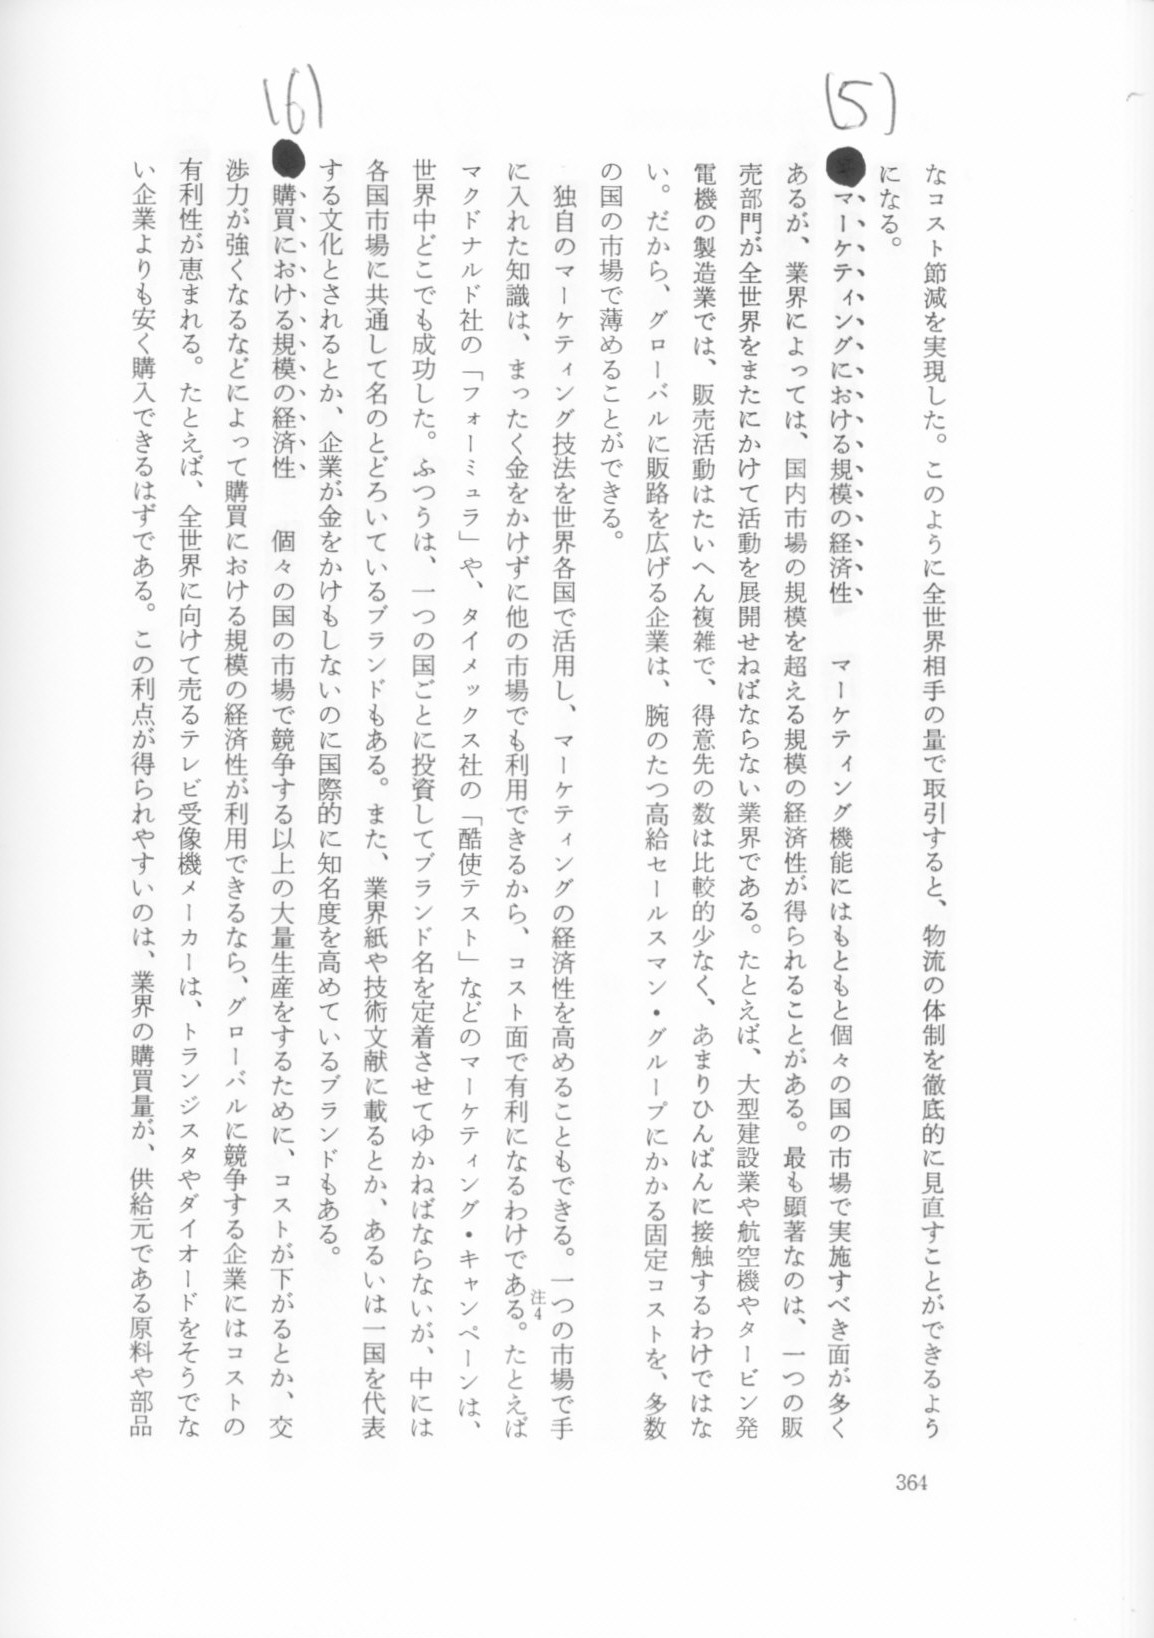 なコスト節減を実現した。このように全世界相手の量で取引すると、物流の体制を徹底的に見直すことができるよう
になる。
(5)
マーケティングにおける規模の経済性　マーケティング機能にはもともと個々の国の市場で実施すべき面が多く
あるが、業界によっては、国内市場の規模を超える規模の経済性が得られることがある。最も顕著なのは、一つの販
売部門が全世界をまたにかけて活動を展開せねばならない業界である。たとえば、大型建設業や航空機やタービン発
電機の製造業では、販売活動はたいへん複雑で、得意先の数は比較的少なく、あまりひんぱんに接触するわけではな
い。だから、グローバルに販路を広げる企業は、腕のたつ高給セールスマン・グループにかかる固定コストを、多数
の国の市場で薄めることができる。
独自のマーケティング技法を世界各国で活用し、マーケティングの経済性を高めることもできる。一つの市場で手
に入れた知識は、まったく金をかけずに他の市場でも利用できるから、コスト面で有利になるわけである。たとえば
注4
マクドナルド社の「フォーミュラ」や、タイメックス社の「酷使テスト」などのマーケティング・キャンペーンは、
世界中どこでも成功した。ふつうは、一つの国ごとに投資してブランド名を定着させてゆかねばならないが、中には
各国市場に共通して名のとどろいているブランドもある。また、業界紙や技術文献に載るとか、あるいは一国を代表
する文化とされるとか、企業が金をかけもしないのに国際的に知名度を高めているブランドもある。
(6)
購買における規模の経済性　個々の国の市場で競争する以上の大量生産をするために、コストが下がるとか、交
渉力が強くなるなどによって購買における規模の経済性が利用できるなら、グローバルに競争する企業にはコストの
有利性が恵まれる。たとえば、全世界に向けて売るテレビ受像機メーカーは、トランジスタやダイオードをそうでな
い企業よりも安く購入できるはずである。この利点が得られやすいのは、業界の購買量が、供給元である原料や部品
364